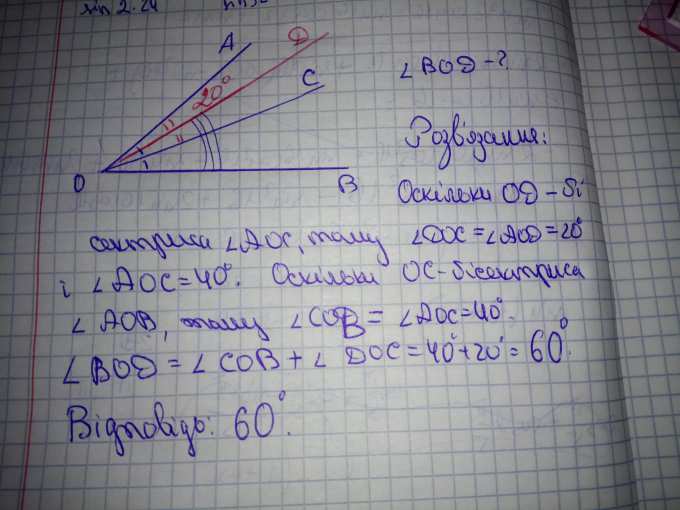 sin 2.24
A
D
C
20°
O
B
∠BOD - ?
Розв'язання:
Оскільки OD - бі
сектриса ∠AOC, тому ∠DOC = ∠AOD = 20°
і ∠AOC = 40°. Оскільки OC - бісектриса
∠AOB, тому ∠COB = ∠AOC = 40°.
∠BOD = ∠COB + ∠DOC = 40° + 20° = 60°.
Відповідь: 60°.